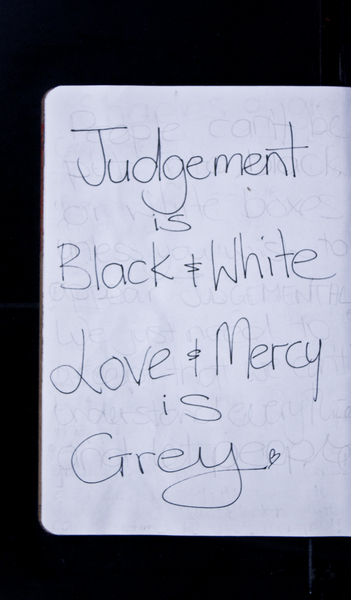 Judgement
is
Black & White
Love & Mercy
is
Grey